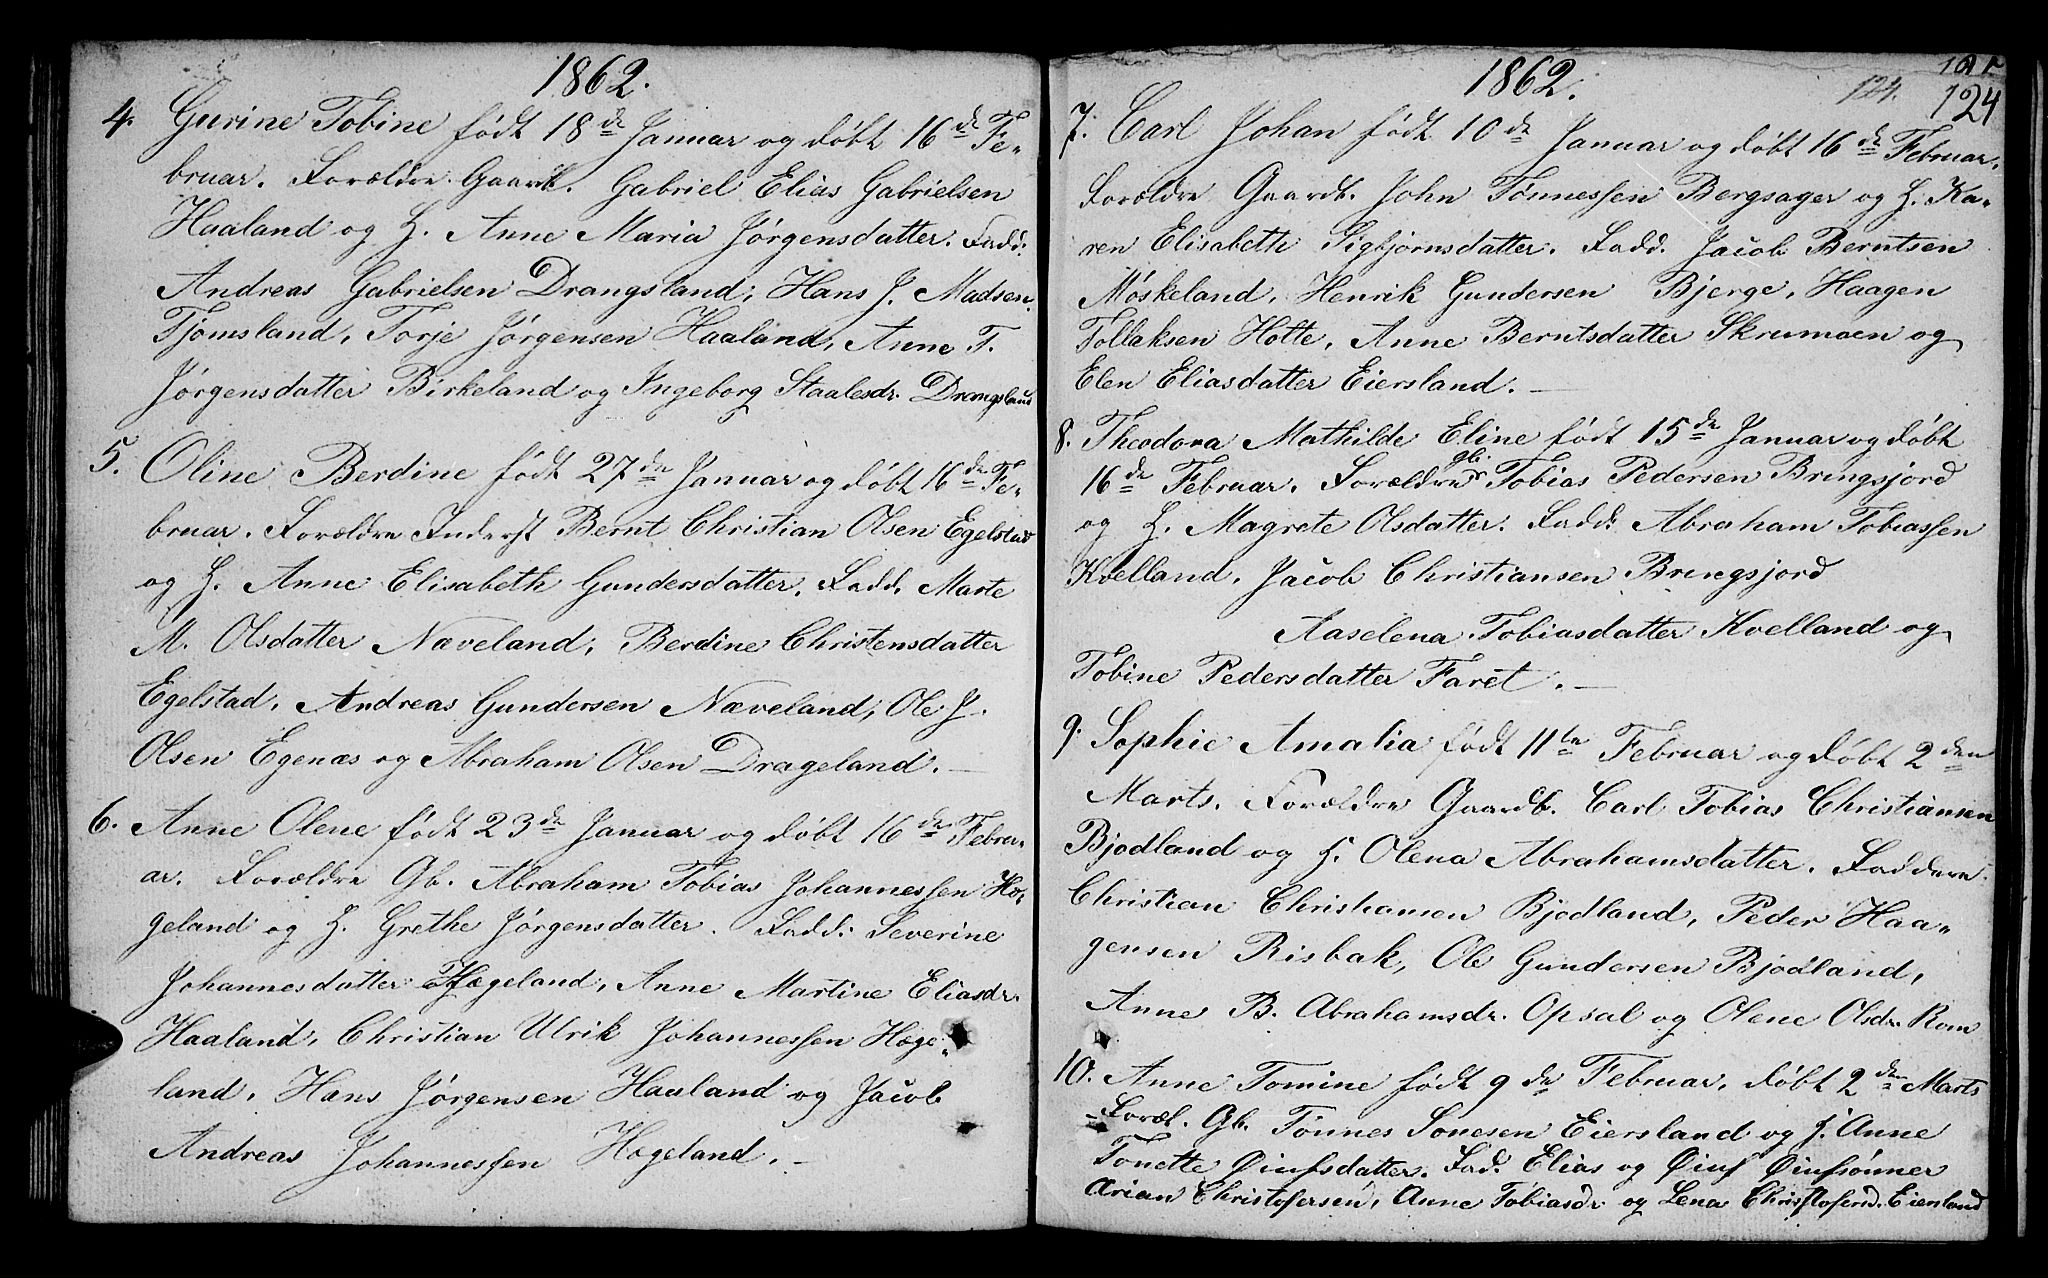 1862.
4. Gurine Tobine født 18de Januar og døbt 16de Fe-
bruar. Forældre Gaardb. Gabriel Elias Gabrielsen
Haaland og H. Anne Maria Jørgensdatter. Fadd:
Andreas Gabrielsen Drangsland, Hans J. Madsen
Tjomsland, Torje Jørgensen Haaland, Anne T.
Jørgensdatter Birkeland og Ingeborg Staalesdr. Drangsland
5. Oline Berdine født 27de Januar og døbt 16de Fe-
bruar. Forældre Inderst Bernt Christian Olsen Egelstad
og H. Anne Elisabeth Gundersdatter. Fadd. Marte
M. Olsdatter Næveland, Berdine Christensdatter
Egelstad, Andreas Gundersen Næveland, Ole J.
Olsen Egenæs og Abraham Olsen Drageland. —
6. Anne Olene født 23de Januar og døbt 16de Febru-
ar. Forældre Gb. Abraham Tobias Johannessen Hæ-
geland og H. Grethe Jørgensdatter. Fadd: Severine
Johannesdatter Hægeland, Anne Martine Eliasdr.
Haaland, Christian Ulrik Johannessen Hæge-
land, Hans Jørgensen Haaland og Jacob
Andreas Johannessen Hægeland. —
1862.
124. 124
7. Carl Johan født 10de Januar og døbt 16de Februar.
Forældre Gaardb. John Tønnessen Bergsager og H. Ka-
ren Elisabeth Sigbjørnsdatter. Fadd. Jacob Berntsen
Møskeland, Henrik Gundersen Bjerge, Haagen
Tollaksen Holte, Anne Berntsdatter Skrumoen og
Elen Eliasdatter Eiersland. —
8. Theodora Mathilde Eline født 15de Januar og døbt
16de Februar. Forældre gb. Tobias Pedersen Bringsjord
og H. Magrete Olsdatter. Fadd: Abraham Tobiassen
Kvelland, Jacob Christiansen Bringsjord
Aaselena Tobiasdatter Kvelland og
Tobine Pedersdatter Faret. —
9. Sophie Amalia født 11te Februar og døbt 2den
Marts. Forældre Gaardb. Carl Tobias Christiansen
Bjødland og H. Olena Abrahamsdatter. Faddere
Christian Christiansen Bjødland, Peder Haa-
gensen Risbak, Ole Gundersen Bjødland,
Anne B. Abrahamsdr. Opsal og Olene Olsdr. Rom
10. Anne Tomine født 9de Februar, døbt 2den Marts
Foræl. Gb. Tønnes Sonesen Eiersland og H. Anne
Tonette Øiufsdatter. Fad. Elias og Øiuf Øiufsønner
Arian Christofersen, Anne Tobiasdr og Lena Christofersd. Eiersland